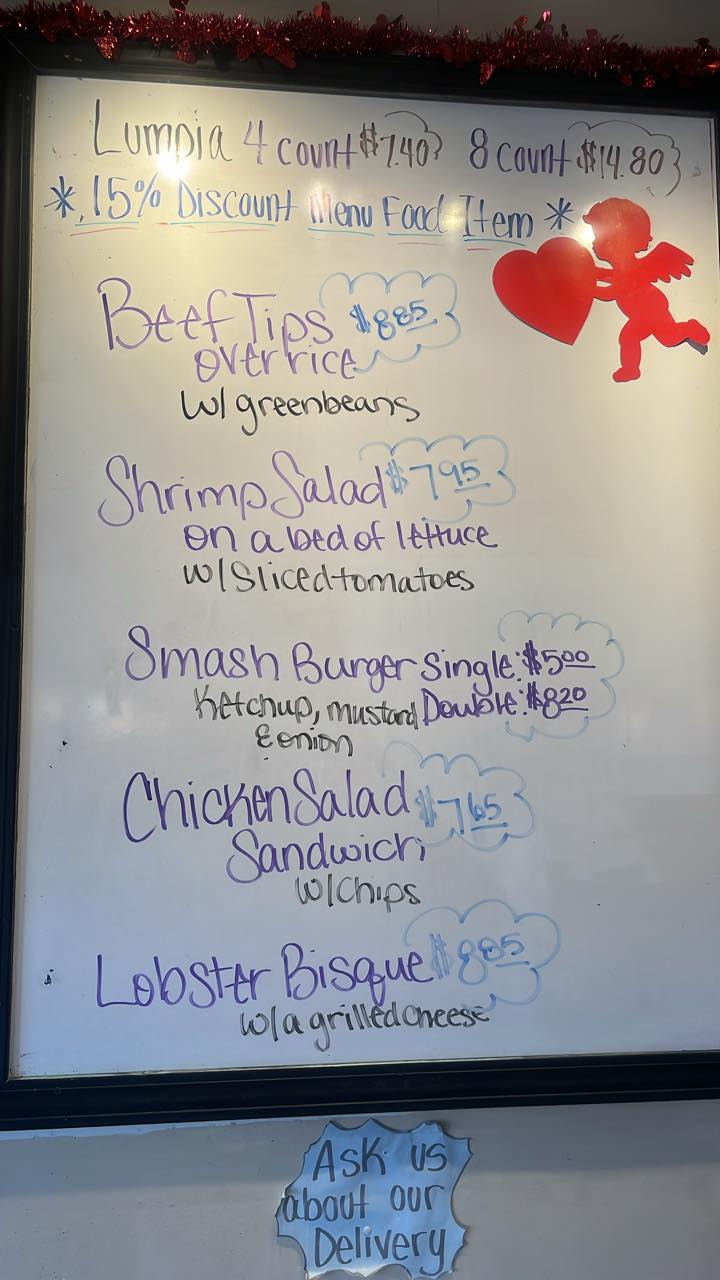 Lumpia 4 count $7.40 8 count $14.80
* 15% Discount Menu Food Item *
Beef Tips $8.85
over rice
w/ greenbeans
Shrimp Salad $7.95
on a bed of lettuce
w/ Sliced tomatoes
Smash Burger Single: $5.00
Ketchup, mustard Double: $8.20
& onion
Chicken Salad $7.65
Sandwich
w/ Chips
Lobster Bisque $8.85
w/ a grilled cheese
Ask us
about our
Delivery